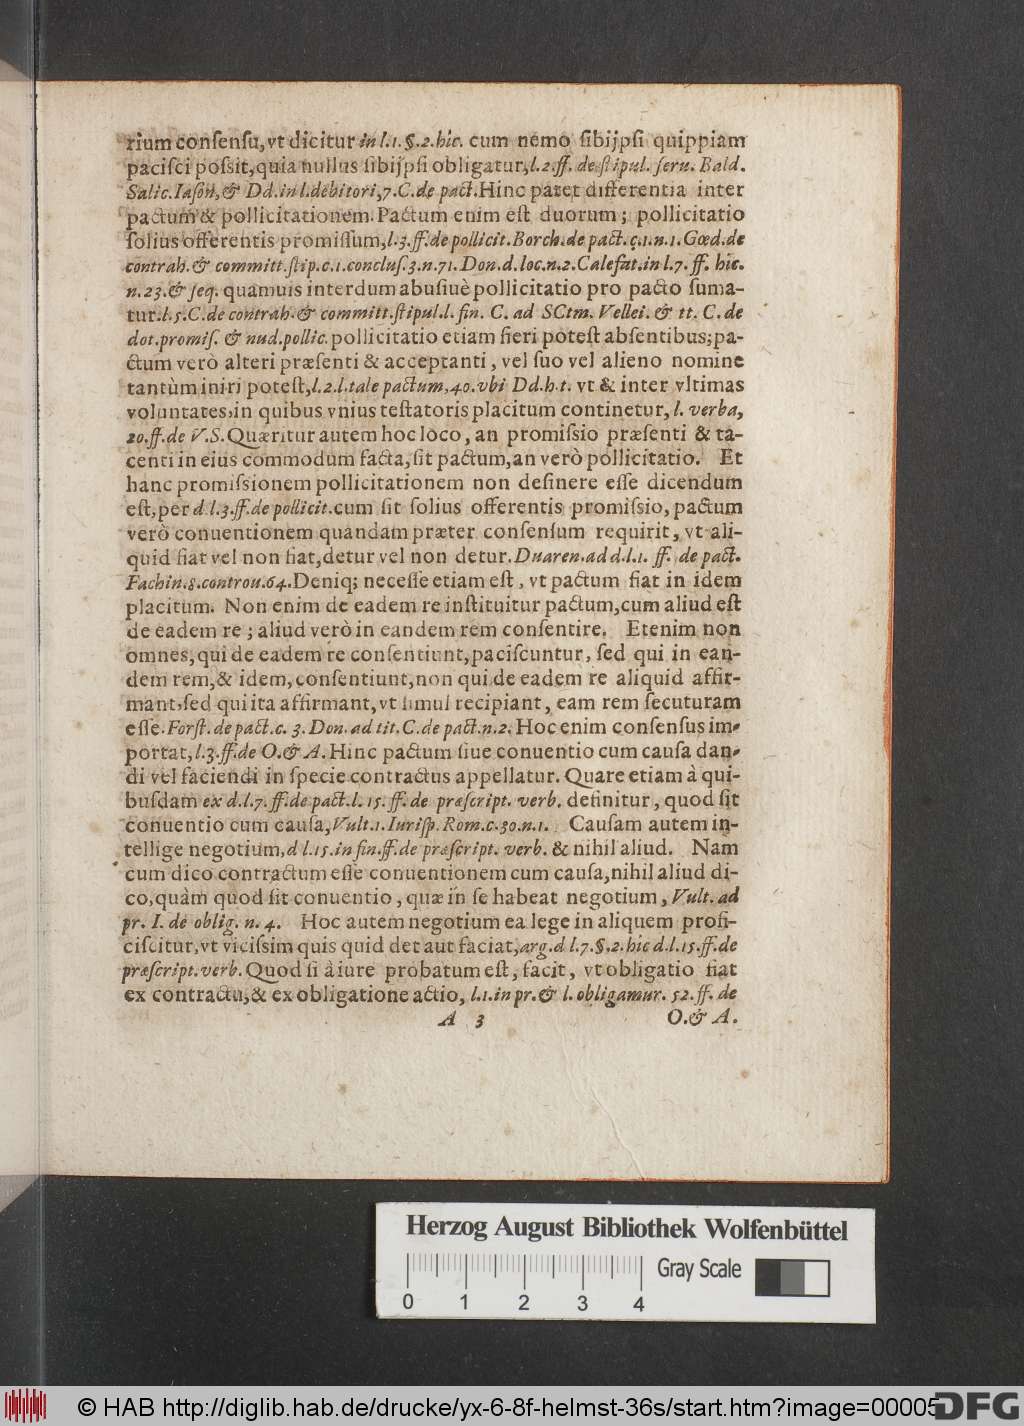 rium conſenſu, vt dicitur in l.1.§.2.hic. cum nemo ſibijpſi quippiam
paciſci poſsit, quia nullus ſibijpſi obligatur, l.2.ff. de ſtipul. ſeru. Bald.
Salic. Iaſon, & Dd. in l. debitori, 7. C. de pact. Hinc patet differentia inter
pactum & pollicitationem. Pactum enim eſt duorum; pollicitatio
ſolius offerentis promiſſum, l.3.ff. de pollicit. Borch. de pact. c.1.n.1. Gœd. de
contrah. & committ. ſtip. c.1. concluſ. 3. n. 71. Don. d. loc. n.2. Calefat. in l.7. ff. hic.
n. 23. & ſeq. quamuis interdum abuſiuè pollicitatio pro pacto ſuma-
tur. l.5. C. de contrah. & committ. ſtipul. l. fin. C. ad SCtm. Vellei. & tt. C. de
dot. promiſ. & nud. pollic. pollicitatio etiam fieri poteſt abſentibus; pa-
ctum verò alteri præſenti & acceptanti, vel ſuo vel alieno nomine
tantùm iniri poteſt, l.2. l. tale pactum, 40. vbi Dd. h. t. vt & inter vltimas
voluntates, in quibus vnius teſtatoris placitum continetur, l. verba,
20. ff. de V.S. Quæritur autem hoc loco, an promiſsio præſenti & ta-
centi in eius commodum facta, ſit pactum, an verò pollicitatio. Et
hanc promiſsionem pollicitationem non deſinere eſſe dicendum
eſt, per d. l.3. ff. de pollicit. cum ſit ſolius offerentis promiſsio, pactum
verò conuentionem quandam præter conſenſum requirit, vt ali-
quid fiat vel non fiat, detur vel non detur. Duaren. ad d. l.1. ff. de pact.
Fachin. 8. controu. 64. Deniq; neceſſe etiam eſt, vt pactum fiat in idem
placitum. Non enim de eadem re inſtituitur pactum, cum aliud eſt
de eadem re; aliud verò in eandem rem conſentire. Etenim non
omnes, qui de eadem re conſentiunt, paciſcuntur, ſed qui in ean-
dem rem, & idem, conſentiunt, non qui de eadem re aliquid affir-
mant, ſed qui ita affirmant, vt ſimul recipiant, eam rem ſecuturam
eſſe. Forſt. de pact. c. 3. Don. ad tit. C. de pact. n.2. Hoc enim conſenſus im-
portat, l.3. ff. de O. & A. Hinc pactum ſiue conuentio cum cauſa dan-
di vel faciendi in ſpecie contractus appellatur. Quare etiam à qui-
buſdam ex d. l.7. ff. de pact. l. 15. ff. de præſcript. verb. definitur, quod ſit
conuentio cum cauſa, Vult. 1. Iuriſp. Rom. c. 30. n.1. Cauſam autem in-
tellige negotium, d l.15. in fin. ff. de præſcript. verb. & nihil aliud. Nam
cum dico contractum eſſe conuentionem cum cauſa, nihil aliud di-
co, quàm quod ſit conuentio, quæ in ſe habeat negotium, Vult. ad
pr. I. de oblig. n. 4. Hoc autem negotium ea lege in aliquem profi-
ciſcitur, vt viciſsim quis quid det aut faciat, arg. d l.7. §.2. hic d. l.15. ff. de
præſcript. verb. Quod ſi à iure probatum eſt, facit, vt obligatio fiat
ex contractu, & ex obligatione actio, l.1. in pr. & l. obligamur. 52. ff. de
A 3 O. & A.
Herzog August Bibliothek Wolfenbüttel
Gray Scale
0 1 2 3 4
© HAB http://diglib.hab.de/drucke/yx-6-8f-helmst-36s/start.htm?image=00005
DFG